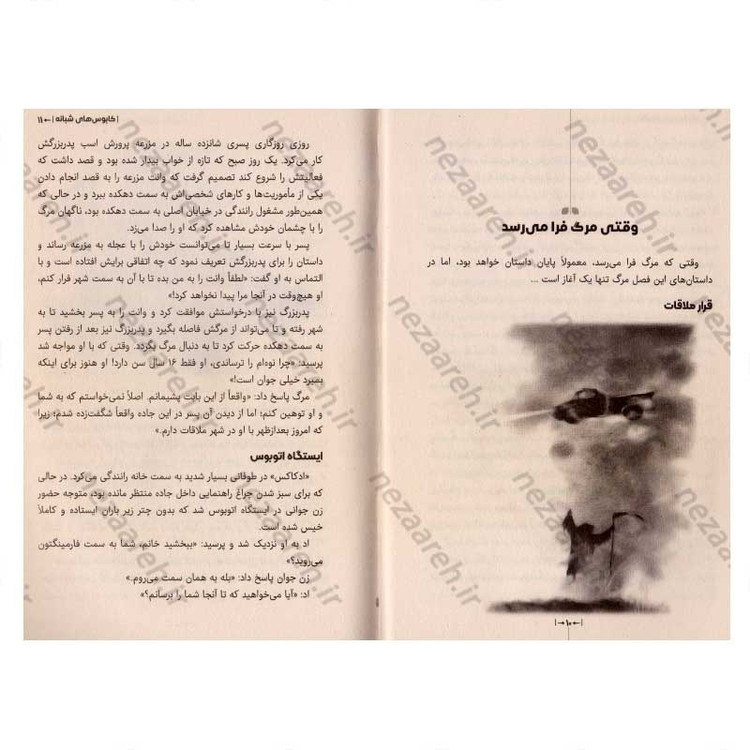 وقتی مرگ فرا می‌رسد
وقتی که مرگ فرا می‌رسد، معمولاً پایان داستان خواهد بود، اما در
داستان‌های این فصل مرگ تنها یک آغاز است ...
قرار ملاقات
|←۱۰→|
|کابوس‌های شبانه|←۱۱
روزی روزگاری پسری شانزده ساله در مزرعه پرورش اسب پدربزرگش
کار می‌کرد. یک روز صبح که تازه از خواب بیدار شده بود و قصد داشت که
فعالیتش را شروع کند تصمیم گرفت که وانت مزرعه را به قصد انجام دادن
یکی از مأموریت‌ها و کارهای شخصی‌اش به سمت دهکده ببرد و در حالی که
همین‌طور مشغول رانندگی در خیابان اصلی به سمت دهکده بود، ناگهان مرگ
را با چشمان خودش مشاهده کرد که او را صدا می‌زد.
پسر با سرعت بسیار تا می‌توانست خودش را با عجله به مزرعه رساند و
داستان را برای پدربزرگش تعریف نمود که چه اتفاقی برایش افتاده است و با
التماس به او گفت: «لطفاً وانت را به من بده تا با آن به سمت شهر فرار کنم،
او هیچ‌وقت در آنجا مرا پیدا نخواهد کرد!»
پدربزرگ نیز با درخواستش موافقت کرد و وانت را به پسر بخشید تا به
شهر رفته و تا می‌تواند از مرگش فاصله بگیرد و پدربزرگ نیز بعد از رفتن پسر
به سمت دهکده حرکت کرد تا به دنبال مرگ بگردد. وقتی که با او مواجه شد
پرسید: «چرا نوه‌ام را ترساندی، او فقط ۱۶ سال سن دارد! او هنوز برای اینکه
بمیرد خیلی جوان است!»
مرگ پاسخ داد: «واقعاً از این بابت پشیمانم. اصلاً نمی‌خواستم که به شما
و او توهین کنم؛ اما از دیدن آن پسر در این جاده واقعاً شگفت‌زده شدم؛ زیرا
که امروز بعدازظهر با او در شهر ملاقات دارم.»
ایستگاه اتوبوس
«ادکاکس» در طوفانی بسیار شدید به سمت خانه رانندگی می‌کرد. در حالی
که برای سبز شدن چراغ راهنمایی داخل جاده منتظر مانده بود، متوجه حضور
زن جوانی در ایستگاه اتوبوس شد که بدون چتر زیر باران ایستاده و کاملاً
خیس شده است.
اد به او نزدیک شد و پرسید: «ببخشید خانم، شما به سمت فارمینگتون
می‌روید؟»
زن جوان پاسخ داد: «بله به همان سمت می‌روم.»
اد: «آیا می‌خواهید که تا آنجا شما را برسانم؟»
nezaareh.ir